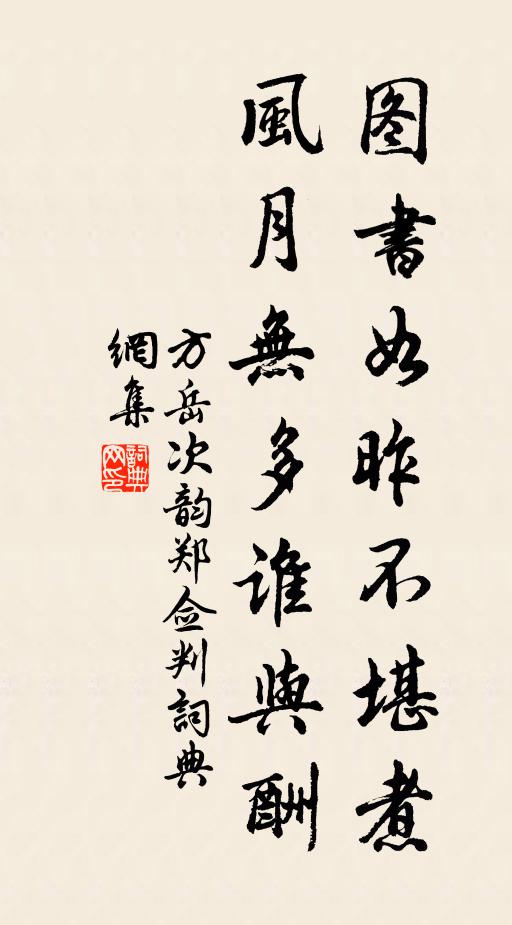 图書如昨不堪煮
風月無多谁與酬
方岳次韵郑佥判詞典
網集
詞典网印